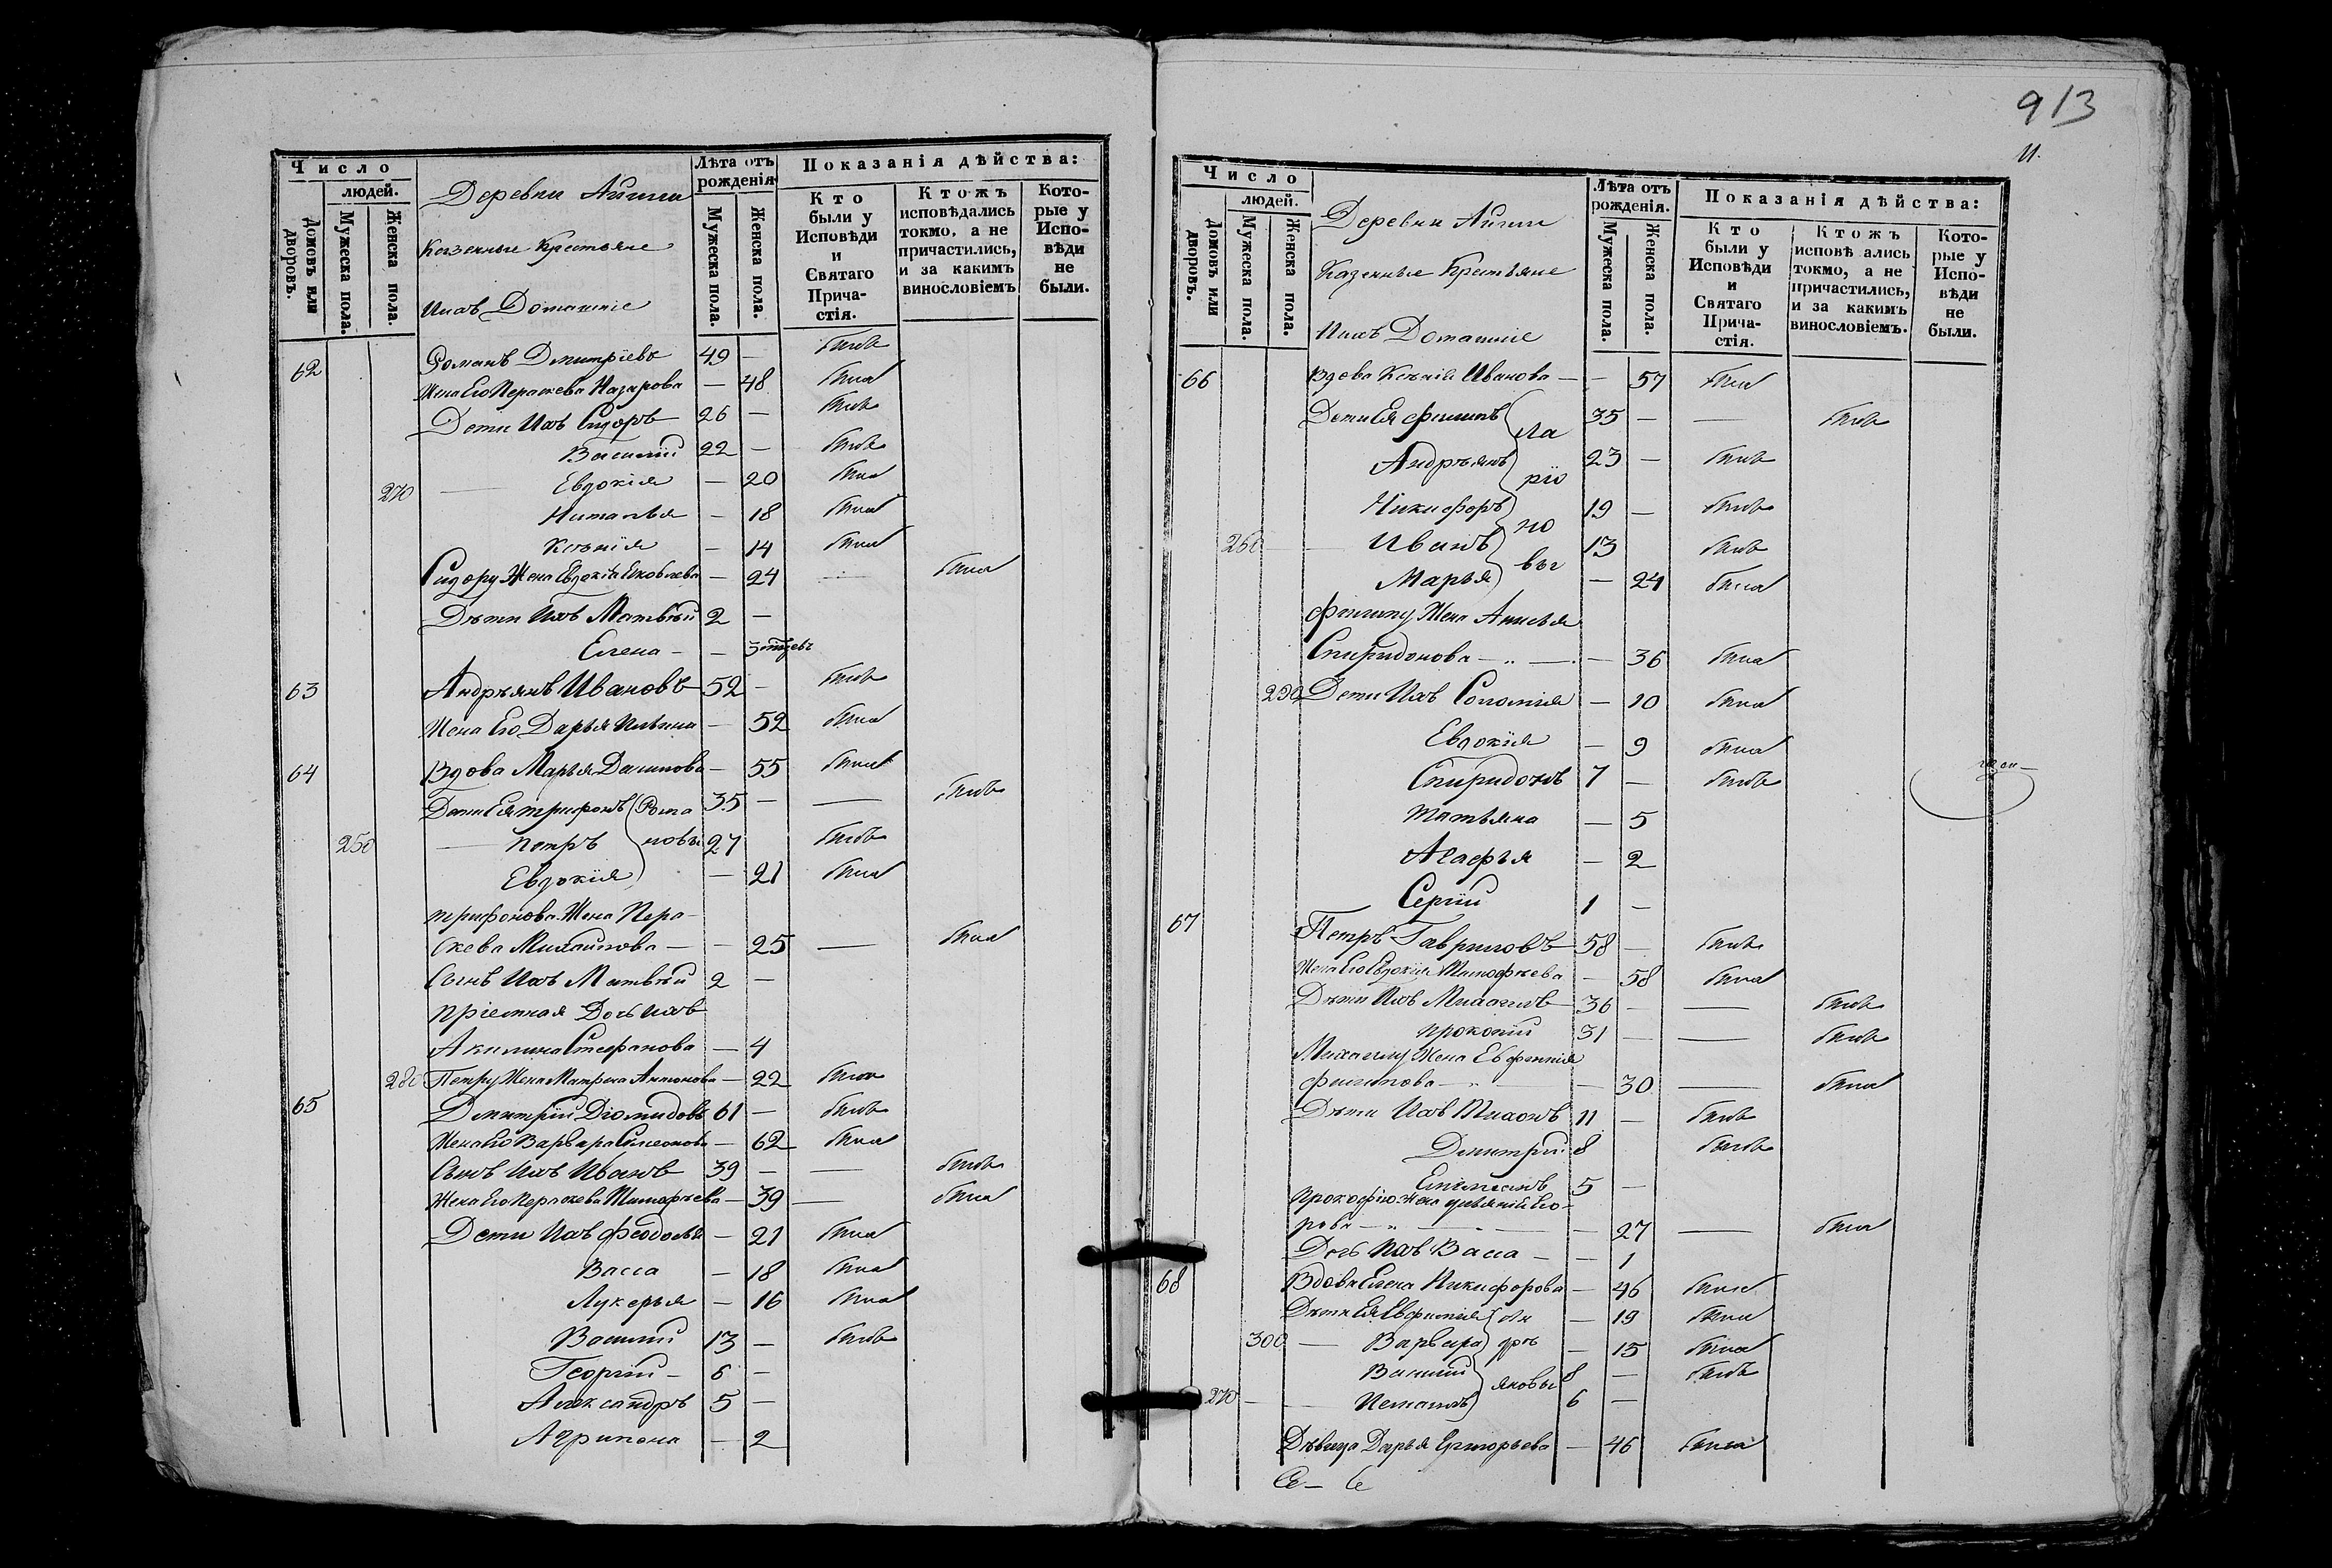 Число
людей.
Домовъ или дворовъ.
Мужеска пола.
Женска пола.
Деревни Айши
Казенные Крестьяне
Ихъ Домашніе
Лѣта отъ рожденія
Мужеска пола.
Женска пола.
Показанія дѣйства:
Кто были у Исповѣди и Святаго Прича-стія.
Ктожъ исповѣдались токмо, а не причастились, и за какимъ винословіемъ
Кото-рые у Испо-вѣди не были.
62 Романъ Дмитріевъ 49 — былъ
Жена Его Параскева Назарова — 48 была
Дети Ихъ Сидоръ 26 — былъ
Василій 22 — былъ
270 — Евдокія — 20 была
Наталья — 18 была
Ксенія — 14 была
Сидору Жена Евдокія Яковлева — 24 — была
Дѣти Ихъ Матвѣй 2 —
Елена — — 3
63 Андреянъ Ивановъ 52 — былъ
Жена Его Дарья Ильина — 52 была
64 Вдова Марья Данилова — 55 была
Дети Ея Трифонъ Рома 35 — — былъ
250 — Петръ новы 27 былъ
Евдокія — 21 была
Трифонова Жена Пара-
скева Михайлова — — 25 — была
Сынъ Ихъ Матвѣй 2 —
Пріемная Дочь Ихъ
Акилина Стефанова — 4
280 Петру Жена Матрена Антонова — 22 была
65 Дмитрій Діомидовъ 61 — былъ
Жена Его Варвара Симеонова — 62 была
Сынъ Ихъ Иванъ 39 — — былъ
Жена Его Параскева Тимофѣева — 39 — была
Дети Ихъ Феодосья — 21 была
Васса — 18 была
Лукерья — 16 была
Василій 13 — былъ
Георгій — 6 —
Александръ 5 —
Агрипена — 2
913
Число
людей.
Домовъ или дворовъ.
Мужеска пола.
Женска пола.
Деревни Айши
Казенные Крестьяне
Ихъ Домашніе
Лѣта отъ рожденія.
Мужеска пола.
Женска пола.
Показанія дѣйства:
Кто были у Исповѣди и Святаго Прича-стія.
Ктожъ исповѣ ались токмо, а не причастились, и за какимъ винословіемъ.
Кото-рые у Испо-вѣди не были.
66 Вдова Ксенія Иванова — — 57 была
Дети Ея Филипъ Ла 35 — — былъ
Андреянъ ріо 23 — былъ
Никифоръ но 19 — былъ
260 — Иванъ вы 13 былъ
Марья — 24 была
Филипу Жена Анисья
Спиридонова — „ — — 36 была
290 Дети Ихъ Соломія — 10 была
Евдокія — 9 была
Спиридонъ 7 — былъ
Татьяна — 5
Агафья — 2
Сергій 1 —
67 Петръ Гавриловъ 58 — былъ
Жена Его Евдокія Тимофѣева — 58 была
Дѣти Ихъ Михаилъ 36 — — былъ
Прокопій 31 — — былъ
Михаилу Жена Евфимія
Филипова — — 30 — была
Дѣти Ихъ Тихонъ 11 — былъ
Дмитрій 8 былъ
5 —
рова — „ — — 27 — была
Дочь Ихъ Васса — — 1
68 Вдова Елена Никифорова — 46 была
Дѣти Ея Евфимія Ан — 19 была
300 — Варвара дре — 15 была
Василій яновы 8 — былъ
270 — — 6 —
Дѣвица Дарья Григорьева — 46 была